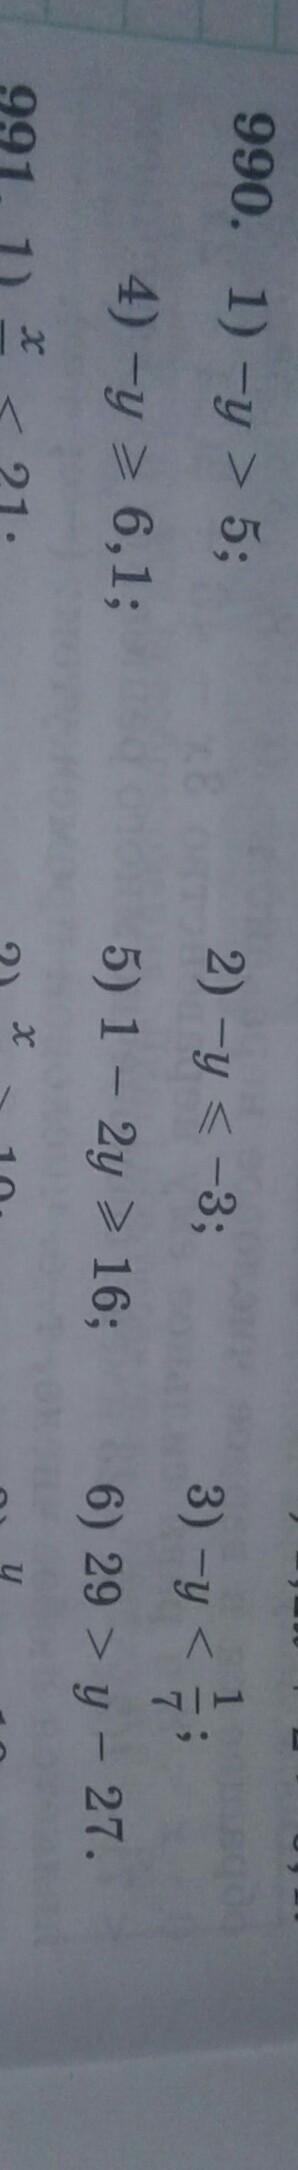 990. 1) −y > 5; 2) −y ⩽ −3; 3) −y < 1/7;
4) −y ⩾ 6,1; 5) 1 − 2y ⩾ 16; 6) 29 > y − 27.
991. 1) x < 21; 2) x